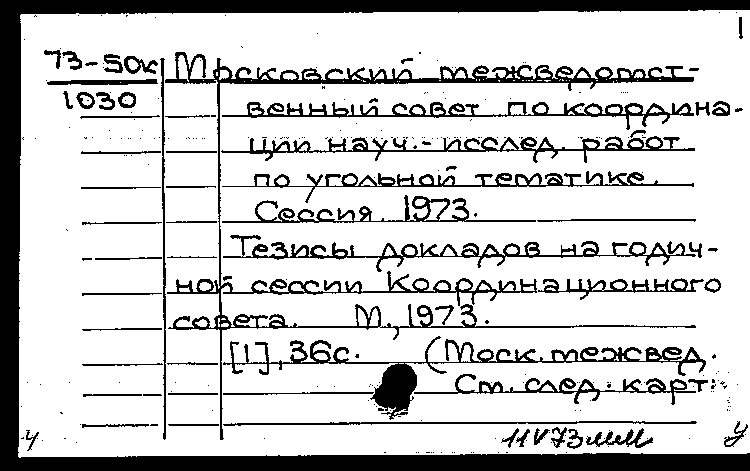 1
73-50к Московский межведомст-
1030 венный совет по координа-
ции науч.- исслед. работ
по угольной тематике.
Сессия. 1973.
Тезисы докладов на годич-
ной сессии Координационного
совета. М., 1973.
[1], 36с. (Моск. межвед.
См. след. карт.
у 11 V 73 у